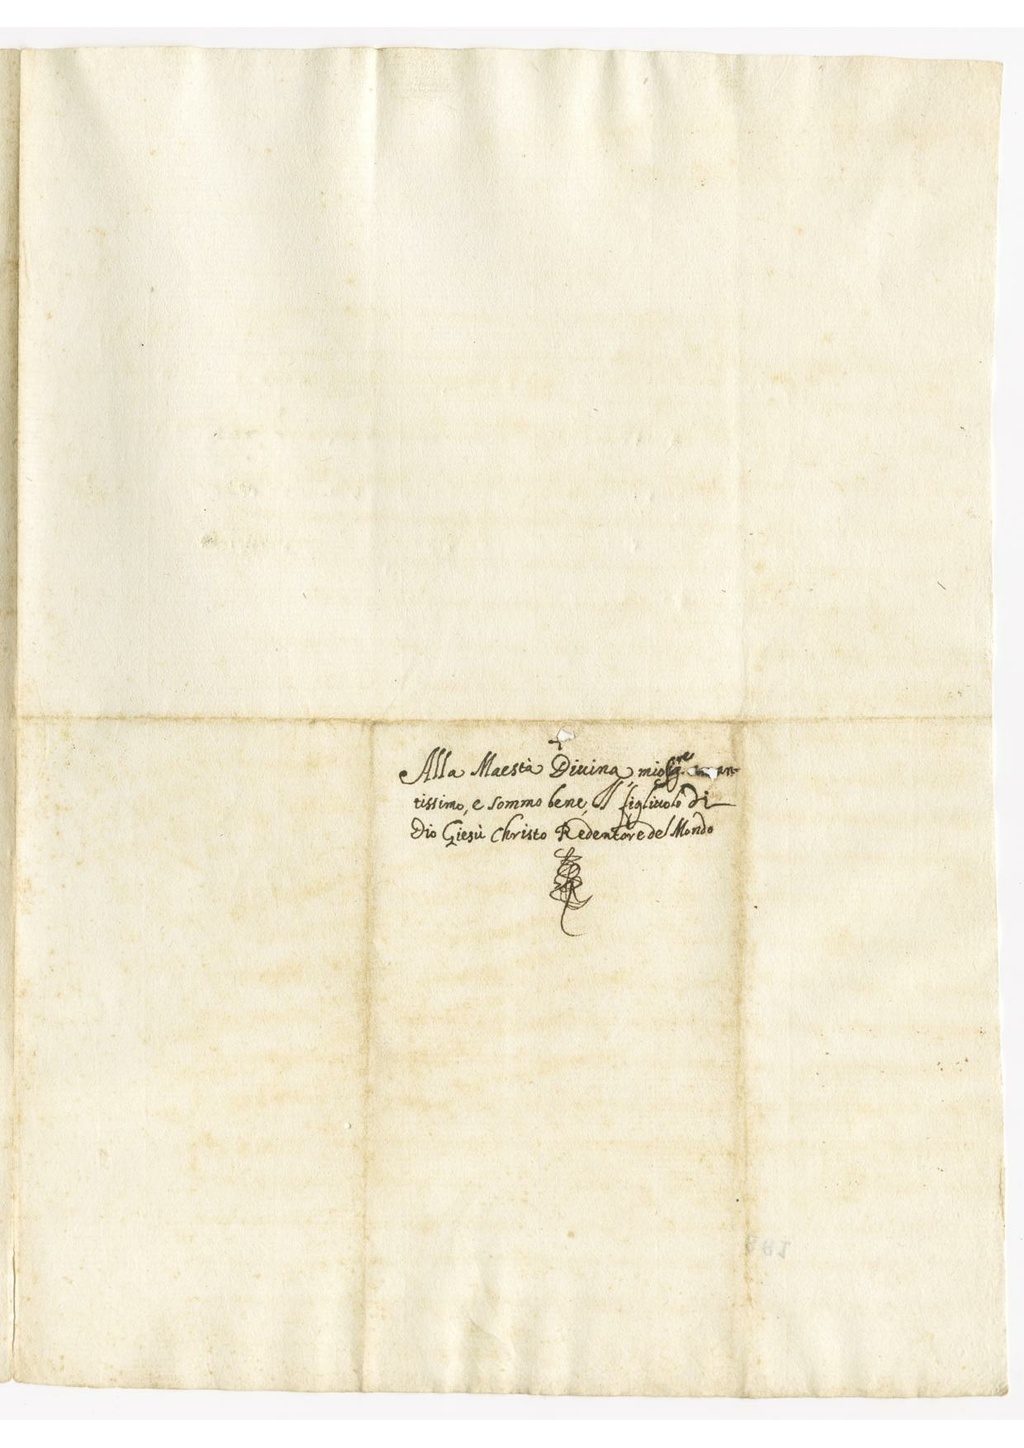 +
Alla Maestà Diuina, mio Sig.re an-
tissimo, e sommo bene, Il figliuolo di
Dio Giesù Christo Redentore del Mondo